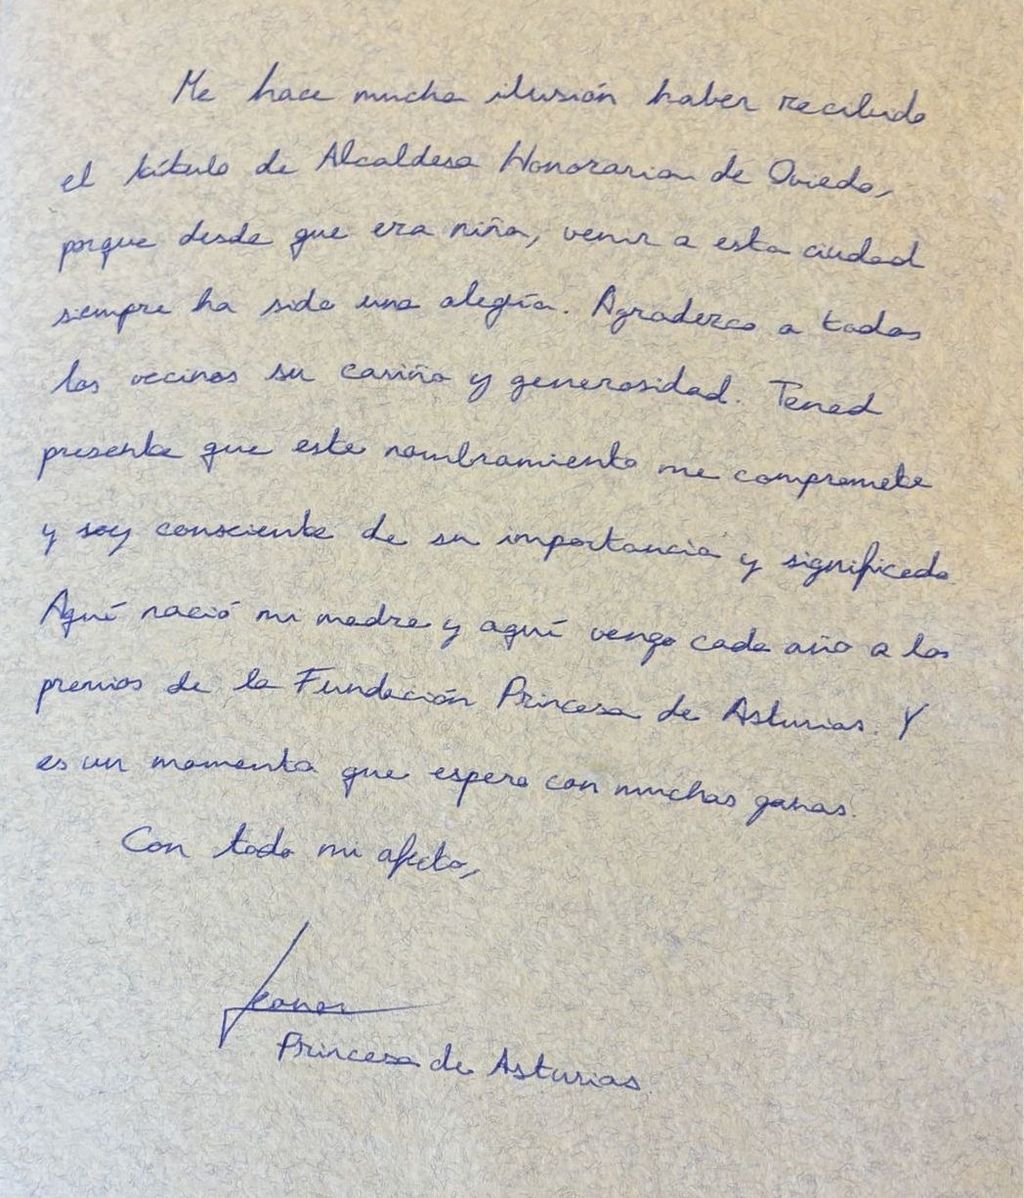 Me hace mucha ilusión haber recibido
el título de Alcaldesa Honoraria de Oviedo,
porque desde que era niña, venir a esta ciudad
siempre ha sido una alegría. Agradezco a todos
los vecinos su cariño y generosidad. Tened
presente que este nombramiento me compromete
y soy consciente de su importancia y significado.
Aquí nació mi madre y aquí vengo cada año a los
premios de la Fundación Princesa de Asturias. Y
es un momento que espero con muchas ganas.
Con todo mi afecto,
Leonor
Princesa de Asturias